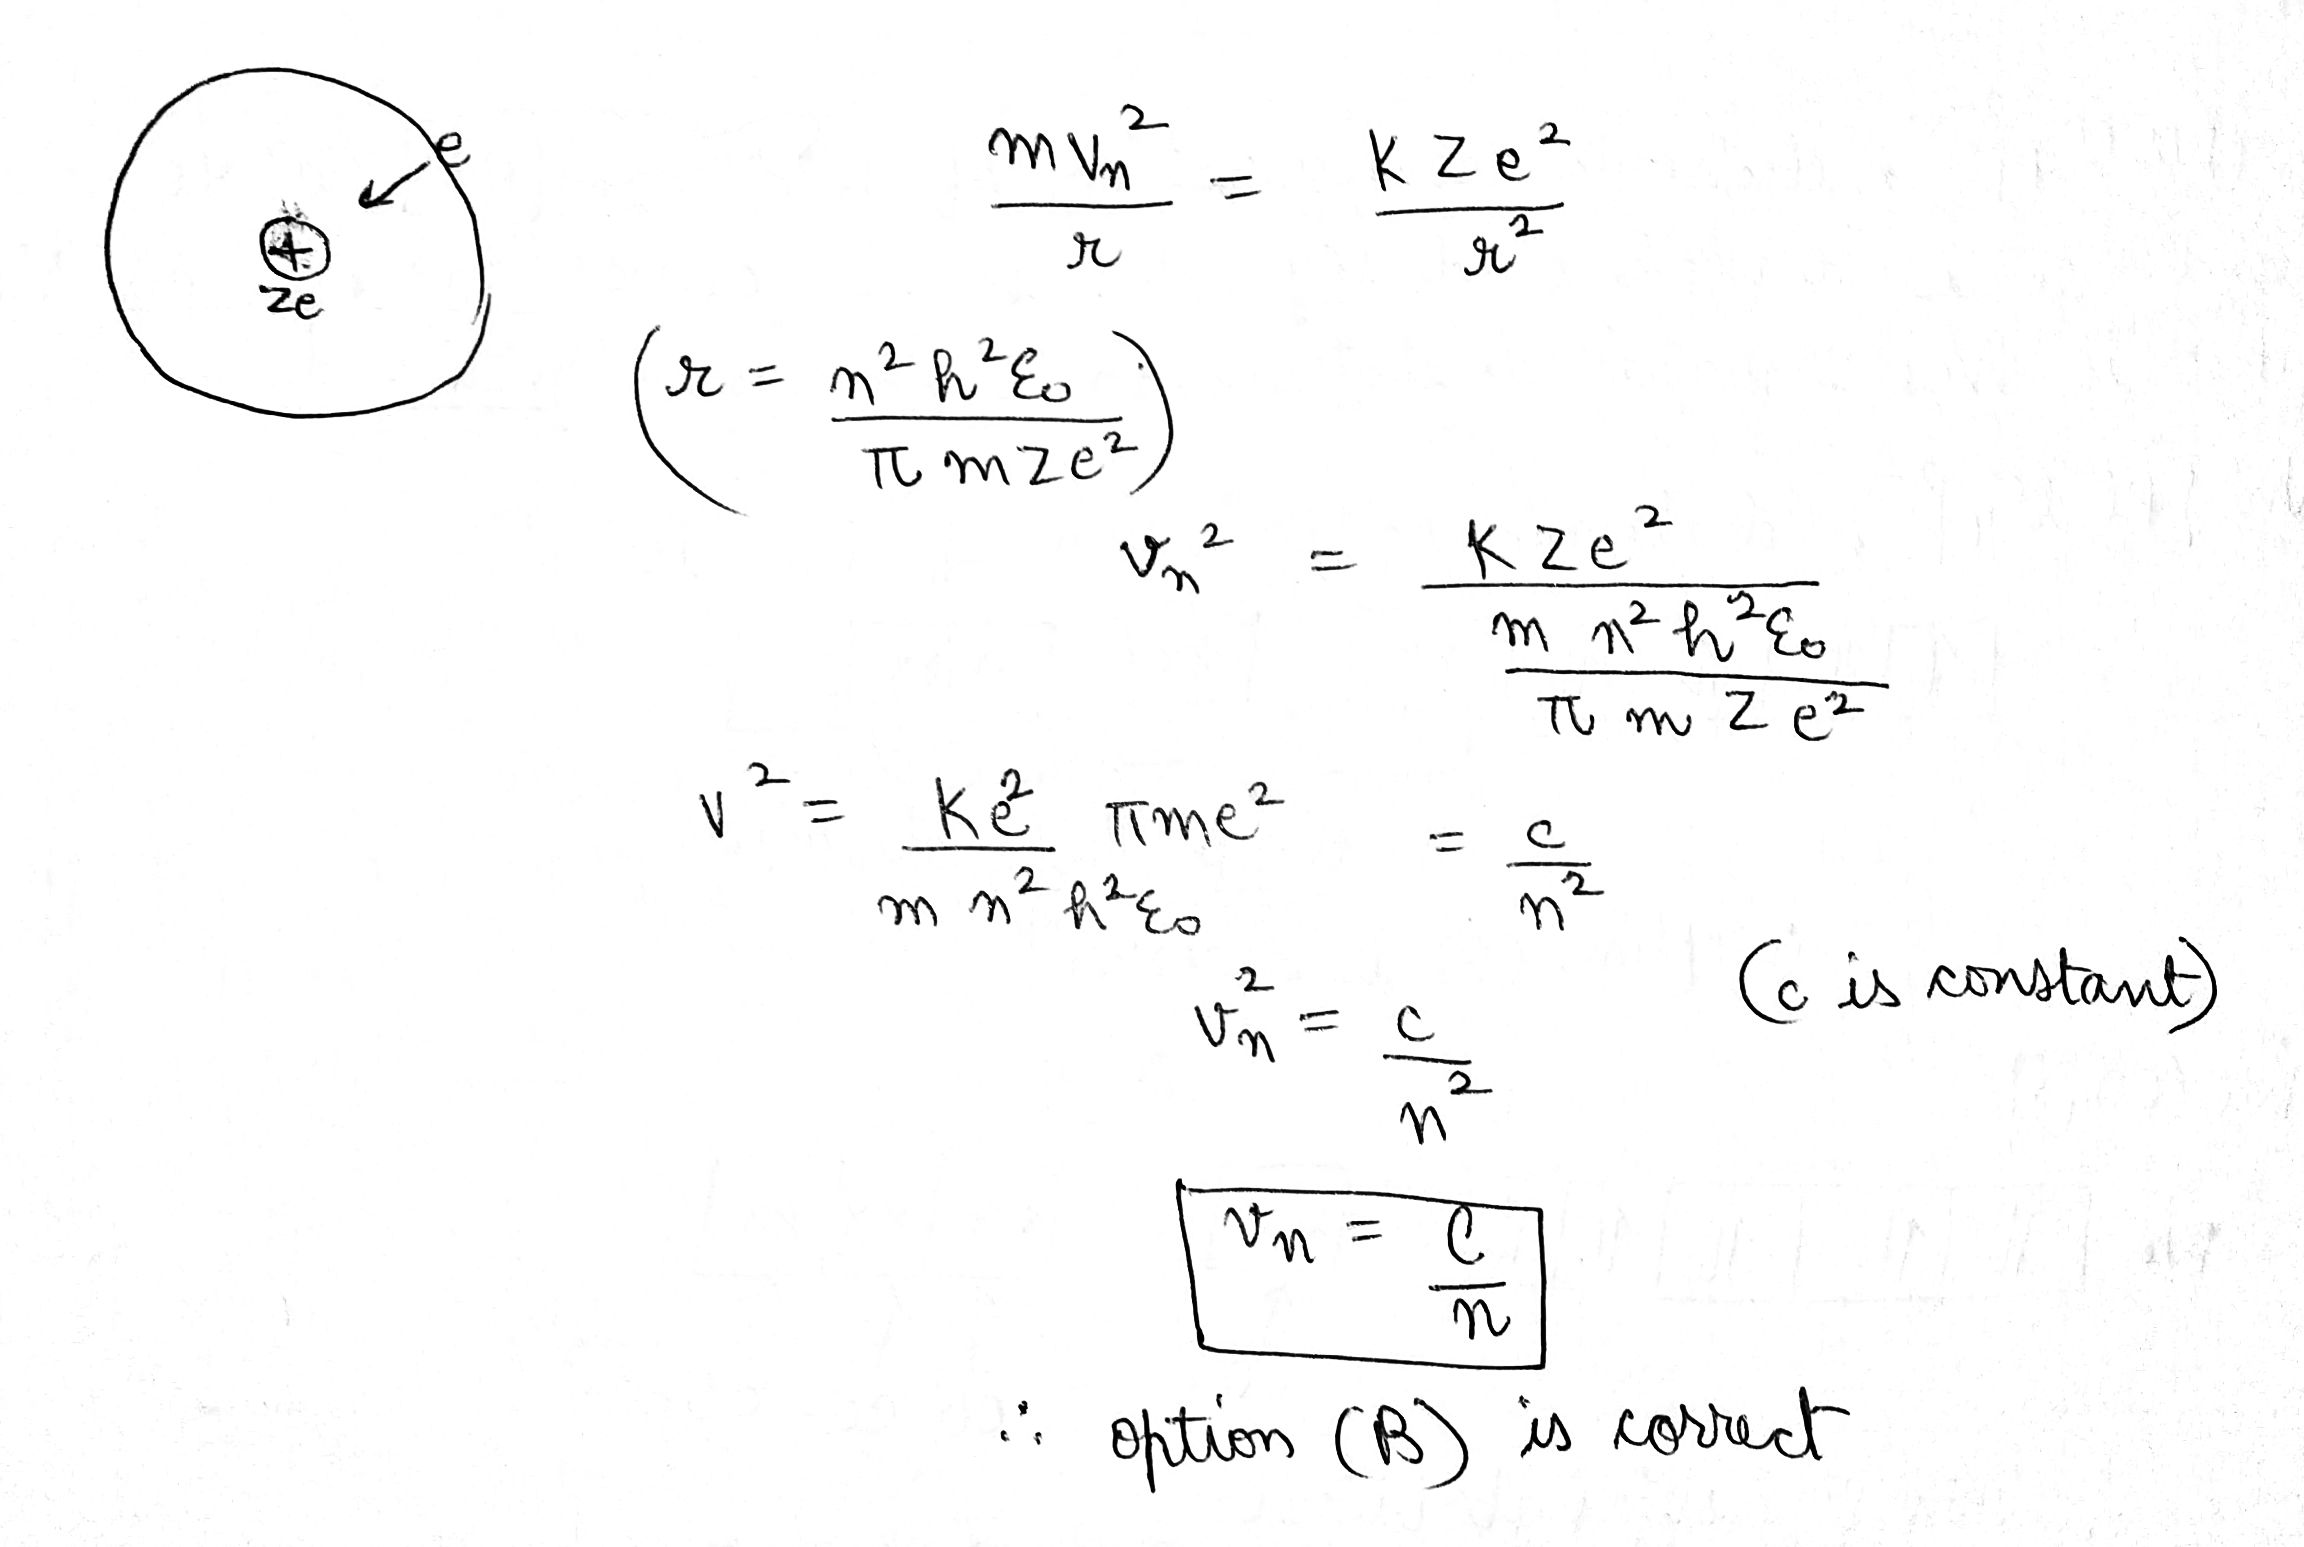 e
+
Ze
mVn²/r = KZe²/r²
(r = n²h²ε₀/πmZe²)
vn² = KZe²/(m n²h²ε₀/πmZe²)
v² = Ke² πme²/m n²h²ε₀ = c/n²
(c is constant)
vn² = c/n²
vn = C/n
∴ option (B) is correct